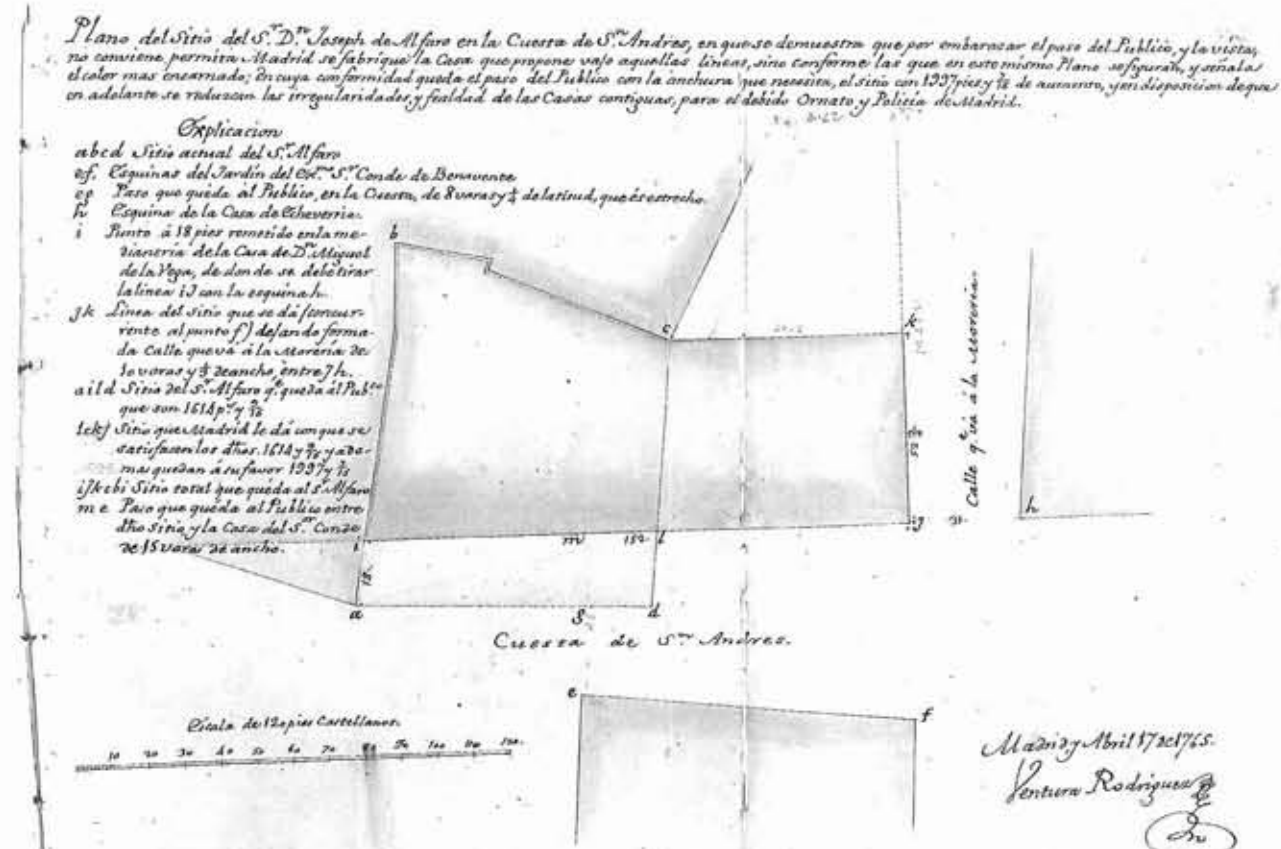 Plano del Sitio del S.r D.n Joseph de Alfaro en la Cuesta de S.n Andres, en que se demuestra que por embarazar el paso del Publico, y la vista,
no conviene, permita Madrid se fabrique la Casa que propone vajo aquellas lineas, sino conforme las que en este mismo Plano se figuran, y señala
el color mas encarnado; en cuya conformidad queda el paso del Publico con la anchura que necesita, el sitio con 1997 pies y de aumento, y en disposicion de que
en adelante se reduzcan las irregularidades, y fealdad de las Casas contiguas, para el debido Ornato y Policia de Madrid.
Explicacion
abcd Sitio actual del S.r Alfaro
ef. Esquinas del Jardin del Ex.mo S.r Conde de Benavente
eg Paso que queda al Publico, en la Cuesta, de 8 varas y 1/4 de latitud, que és estrecho.
h Esquina de la Casa de Echeverria.
i Punto á 18 pies remetido en la me-
dianeria de la Casa de D.n Miguel
de la Vega, de donde se debe tirar
la linea ij con la esquina h.
jk Linea del sitio que se dá (concur-
rente al punto f) dejando forma-
da Calle que vá á la Moreria de
10 varas y 1/3 de ancho, entre j h.
aild Sitio del S.r Alfaro q.e queda al Pub.co
que son 1614 p.s y
lckj Sitio que Madrid le dá con que se
satisfacen los dhos. 1614 y y ade-
mas quedan á su favor 1997 y
ijkcbi Sitio total que queda al S.r Alfaro
m e Paso que queda al Publico entre
dho sitio, y la Casa del S.r Conde
de 15 varas de ancho.
b
c
k
Calle q.e vá á la Moreria.
h
i
m
152
l
j
31
18
a
g
d
Cuesta de S.n Andres.
e
f
Escala de 120 pies Castellanos.
10 20 30 40 50 60 70 80 90 100 110 120
Madrid y Abril 17 de 1765.
Ventura Rodriguez